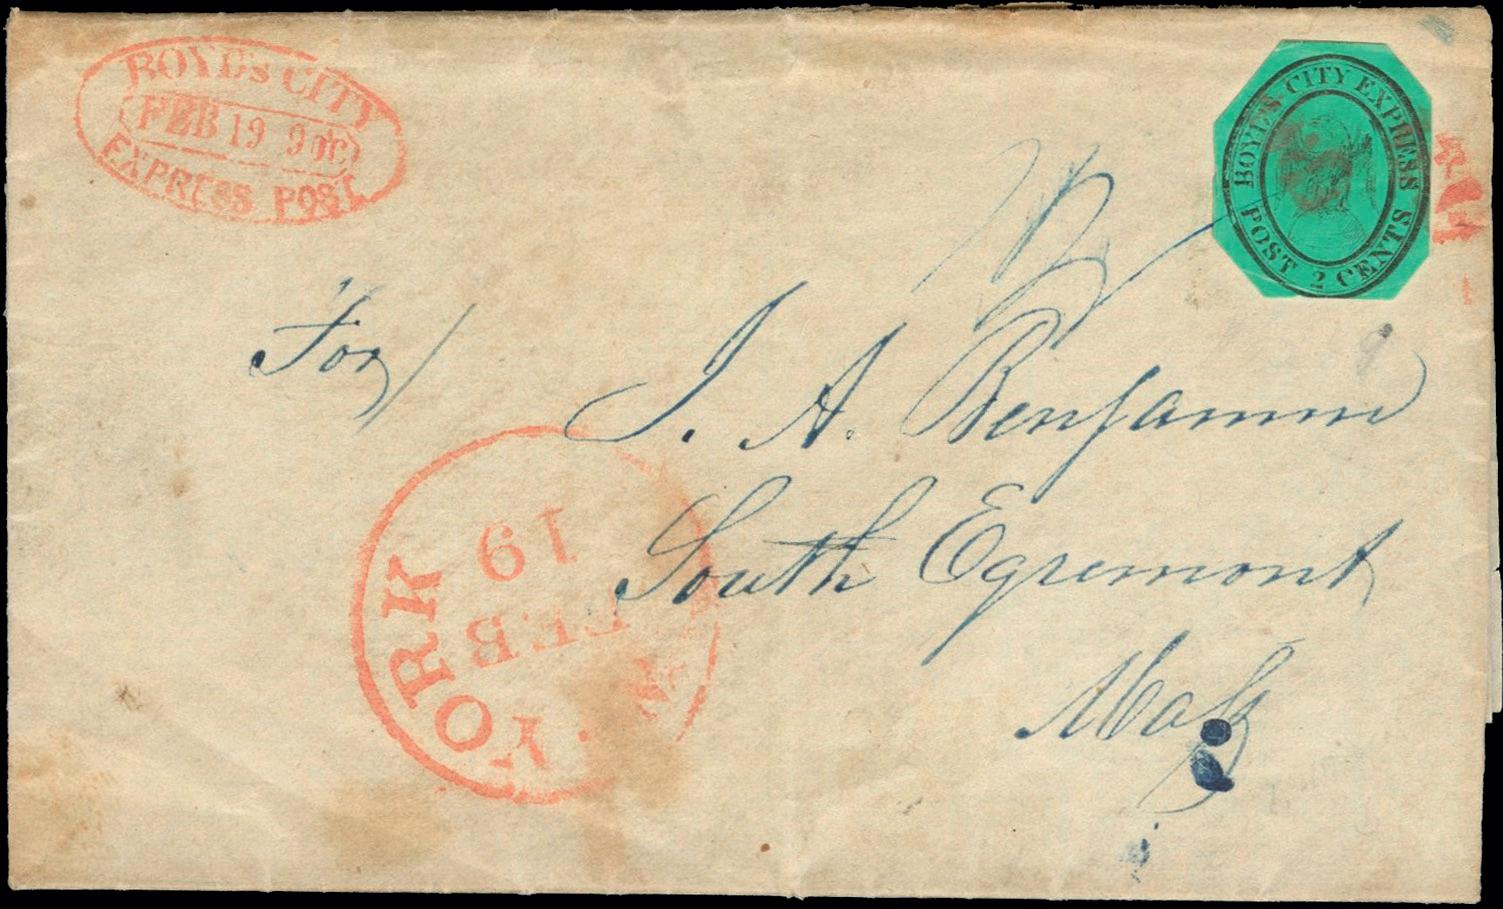 BOYD'S CITY
FEB 19 9 O'C
EXPRESS POST
BOYD'S CITY EXPRESS
POST 2 CENTS
For
J. A. Benjamin
South Egremont
Mass
YORK
FEB
19